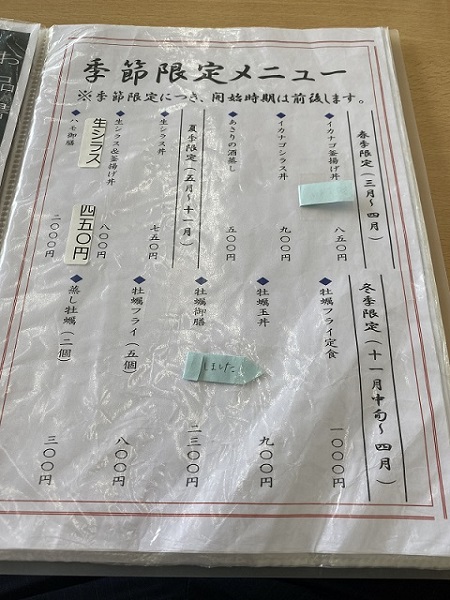 季節限定メニュー
※季節限定につき、開始時期は前後します。
春季限定(三月〜四月)
◆イカナゴ釜揚げ丼 八五〇円
◆イカナゴシラス丼 九〇〇円
◆あさりの酒蒸し 五〇〇円
夏季限定(五月〜十一月)
◆生シラス丼 七五〇円
◆生シラス&釜揚げ丼 八〇〇円
生シラス 四五〇円
◆ハモ御膳 二〇〇〇円
冬季限定(十一月中旬〜四月)
◆牡蠣フライ定食 一〇〇〇円
◆牡蠣玉丼 九〇〇円
◆牡蠣御膳 二三〇〇円
しました
◆牡蠣フライ(五個) 八〇〇円
◆蒸し牡蠣(二個) 三〇〇円